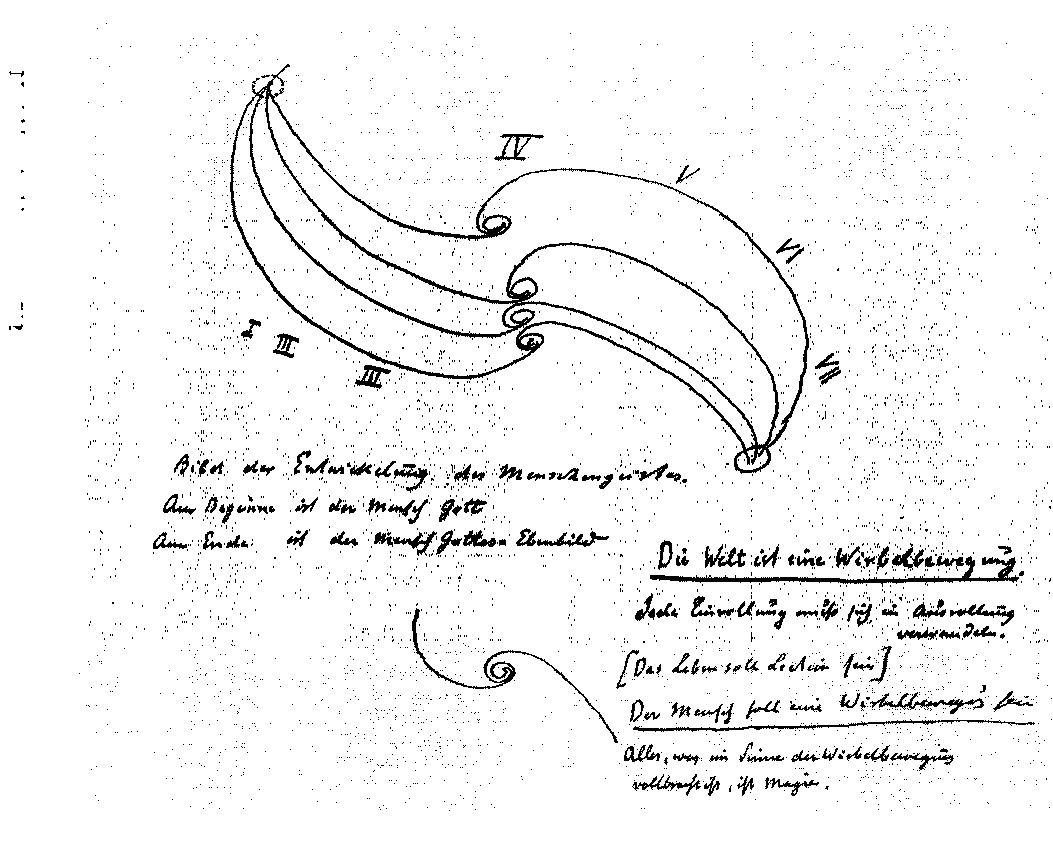 IV
V
VI
VII
I
III
III
Bibel der Entwickelung des Menschengeistes.
Am Beginne ist der Mensch Gott
Am Ende ist der Mensch Gottes Ebenbild
Die Welt ist eine Wirbelbewegung.
Jede Einrollung muß sich in Ausrollung
verwandeln.
[Das Leben soll sein]
Der Mensch soll eine Wirbelbewegg sein
Alles, was im Sinne der Wirbelbewegung
vollbracht ist, ist Magie.